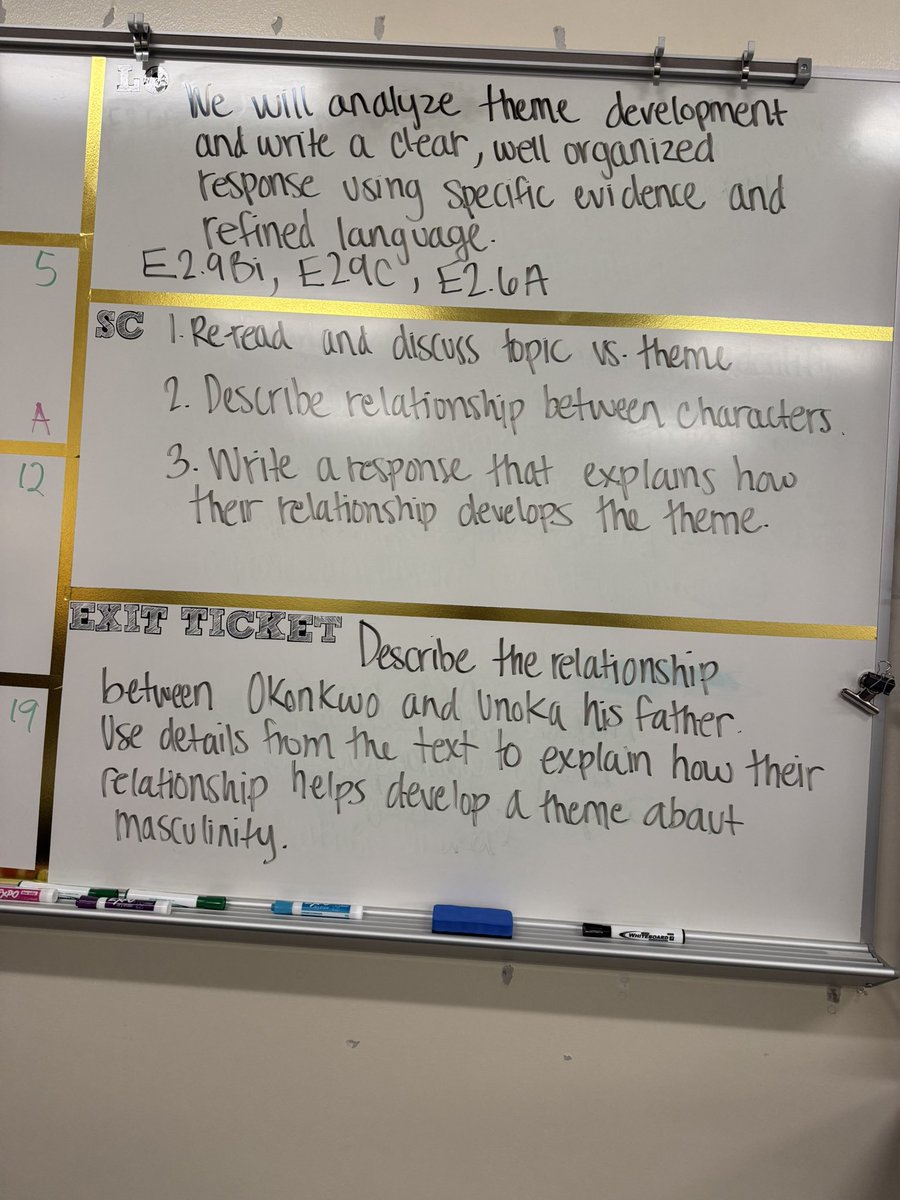 LO
We will analyze theme development
and write a clear, well organized
response using specific evidence and
refined language.
E2.9Bi, E29C, E2.6A
5
SC
1. Re-read and discuss topic vs. theme
A
2. Describe relationship between characters.
12
3. Write a response that explains how
their relationship develops the theme.
EXIT TICKET Describe the relationship
between Okonkwo and Unoka his father.
19
Use details from the text to explain how their
relationship helps develop a theme about
masculinity.
EXPO
WHITEBOARD